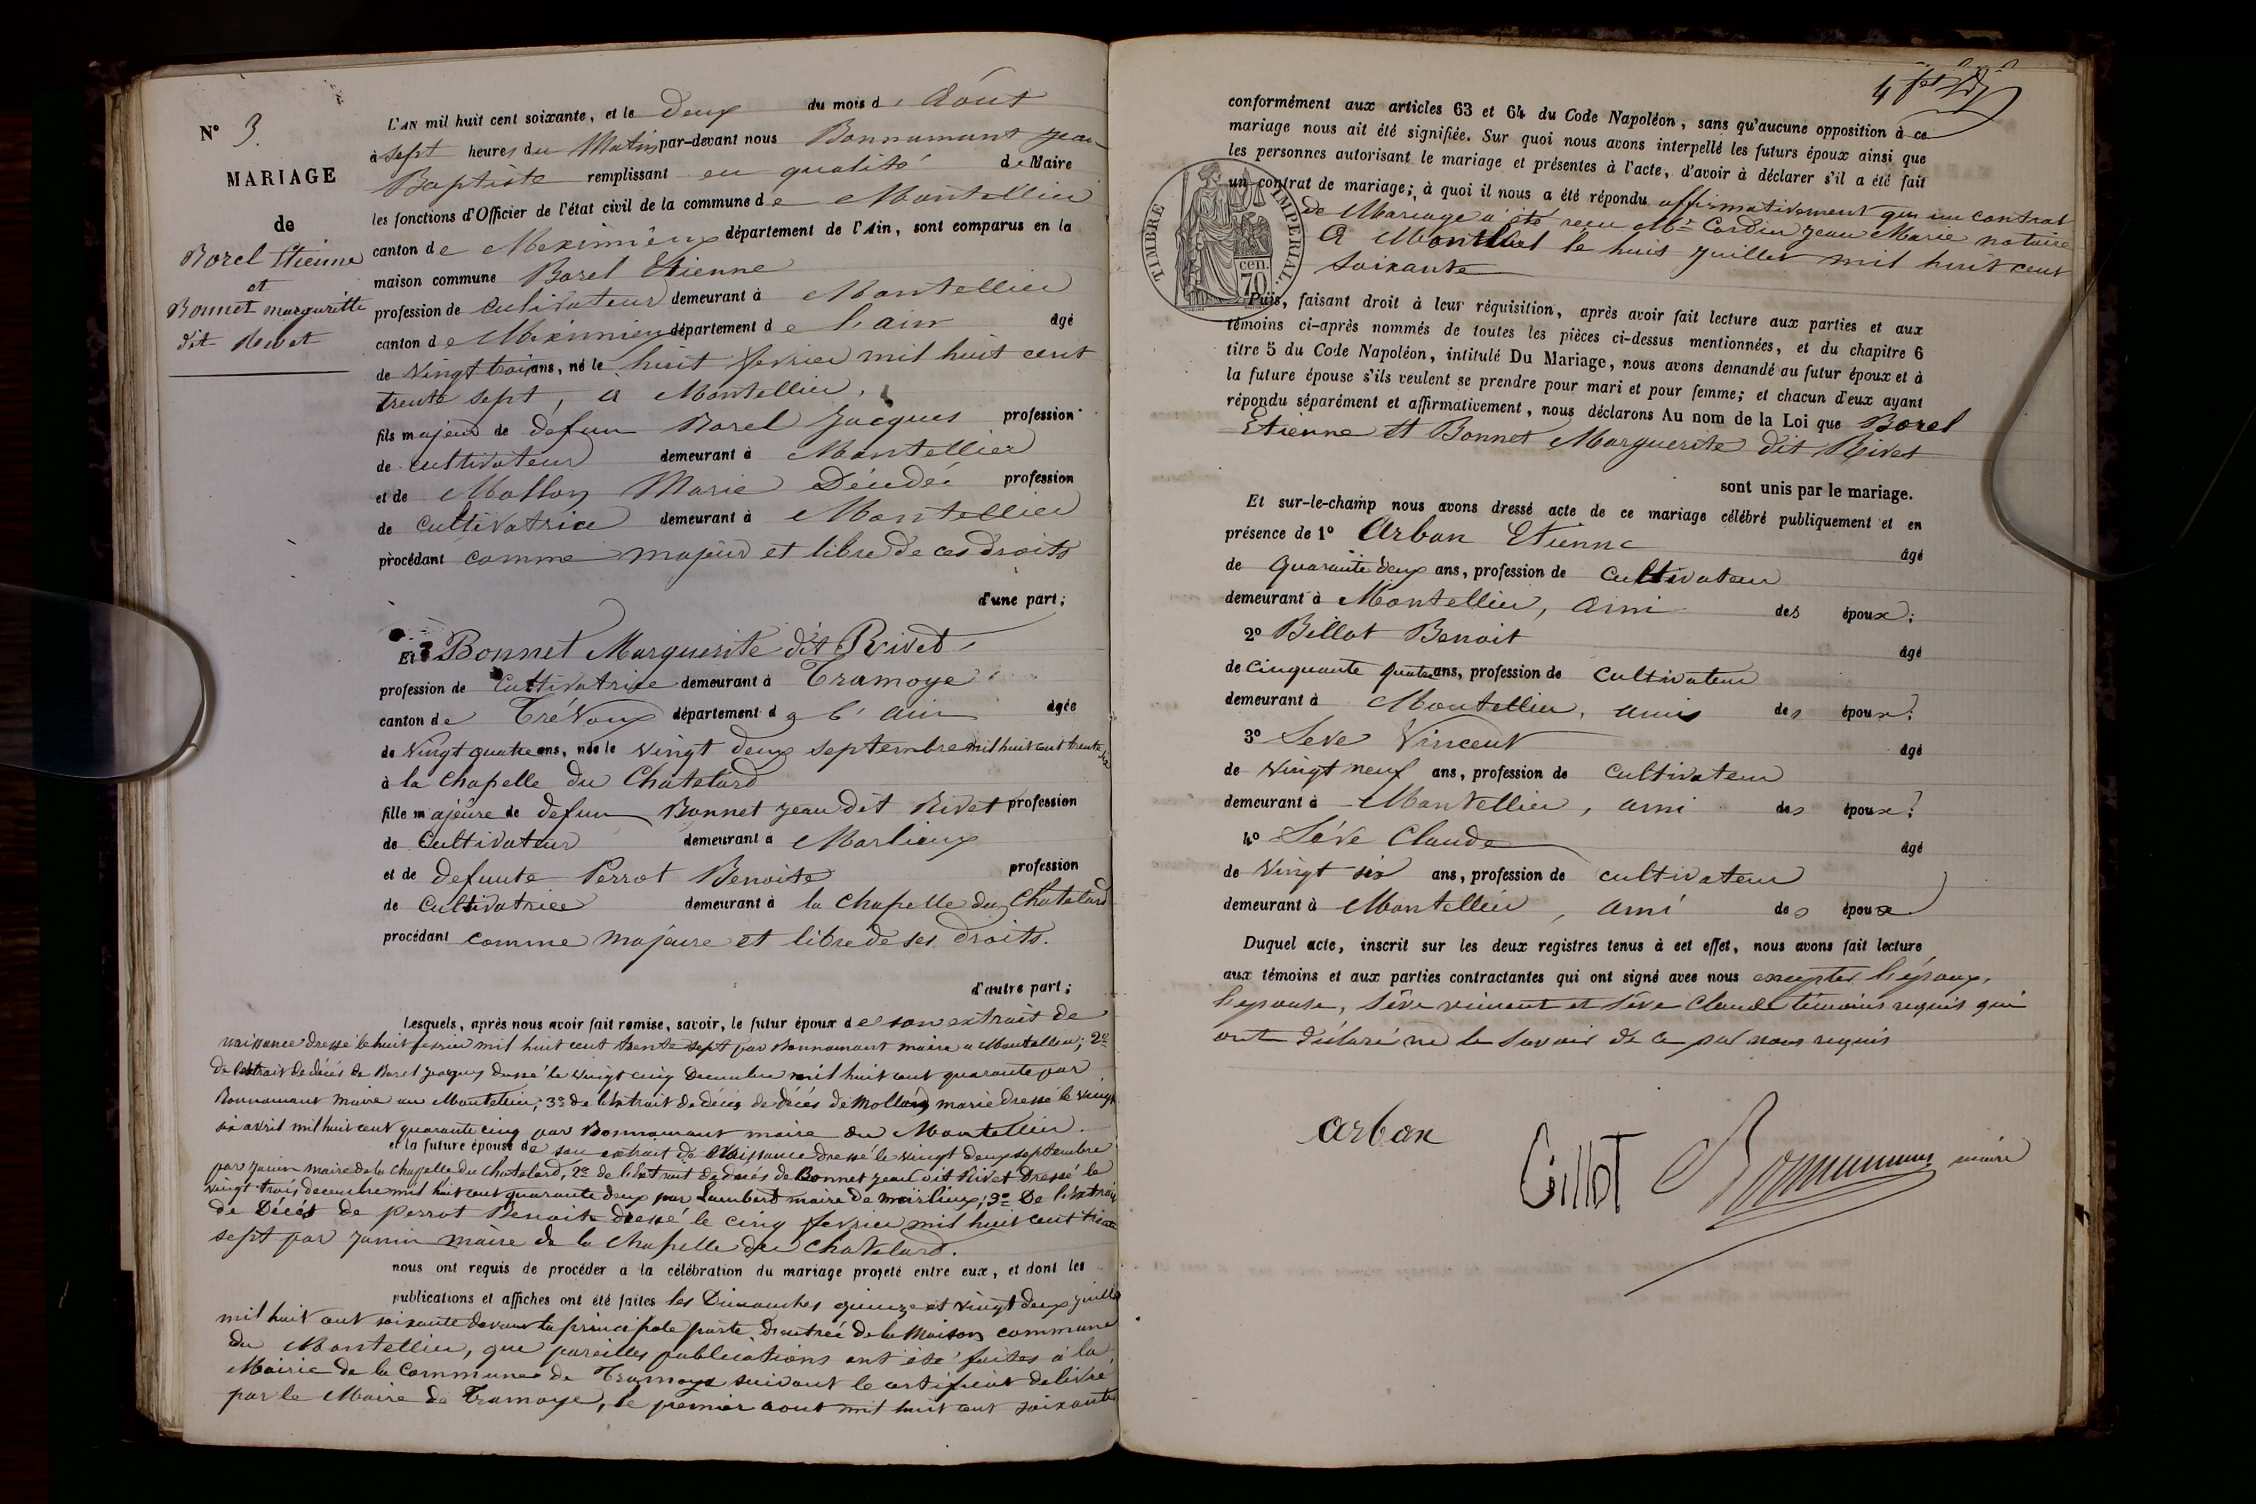 N° 3.
MARIAGE
de
Borel Etienne
et
Bonnet marguerite
dit Rivet
L'AN mil huit cent soixante, et le deux du mois d' Août
à sept heures du Matin par-devant nous Bonnamant jean
Baptiste remplissant en qualité de Maire
les fonctions d'Officier de l'état civil de la commune de Montellier
canton de Meximieux département de l'Ain, sont comparus en la
maison commune Borel Etienne
profession de cultivateur demeurant à Montellier
canton de Meximieux département de l'ain âgé
de Vingt trois ans, né le huit fevrier mil huit cent
trente sept, à Montellier.
fils majeur de defun Borel Jacques profession
de cultivateur demeurant à Montellier
et de Mollon Marie Décédée profession
de cultivatrice demeurant à Montellier
procédant comme majeur et libre de ces droits
d'une part;
Et Bonnet Marguerite dit Rivet
profession de cultivatrice demeurant à Tramoye
canton de Trévoux département de l'ain âgée
de Vingt quatre ans, née le vingt deux septembre mil huit cent trente six
à la Chapelle du Chatelard
fille majeure de defun Bonnet jean dit Rivet profession
de cultivateur demeurant à Marlieux
et de defunte Perrot Benoite profession
de cultivatrice demeurant à la Chapelle du Chatelard
procédant comme majeure et libre de ses droits.
d'autre part;
Lesquels, après nous avoir fait remise, savoir, le futur époux de son extrait de
naissance dressé le huit fevrier mil huit cent trente sept par Bonnamant maire a Montellier; 2°
de l'extrait de décés de Borel Jacques dressé le vingt cinq Decembre mil huit cent quarante par
Bonnamant maire au Montellier; 3° de l'extrait de décès de décés de Mollon marie dressé le vingt
six avril mil huit cent quarante cinq par Bonnamant maire du Montellier.
et la future épouse de son extrait de Naissance dressé le vingt deux septembre
par Janin maire de la Chapelle du Chatelard, 2° de l'extrait de décés de Bonnet jean dit Rivet Dressé le
vingt trois decembre mil huit cent quarante deux par Lambert maire de marlieux; 3° De l'extrait
de Décés de Perrot Benoite dressé le cinq fevrier mil huit cent trente
sept par Janin maire de la Chapelle du Chatelard.
nous ont requis de procéder à la célébration du mariage projeté entre eux, et dont les
publications et affiches ont été faites les Dimanches quinze et vingt deux juillet
mil huit cent soixante devant la principale porte d'entrée de la Maison commune
du Montellier, que pareilles publications ont été faites à la
Mairie de la Commune de Tramoye suivant le certificat delivré
par le Maire de Tramoye, le premier aout mil huit cent soixante
conformément aux articles 63 et 64 du Code Napoléon, sans qu'aucune opposition à ce
mariage nous ait été signifiée. Sur quoi nous avons interpellé les futurs époux ainsi que
les personnes autorisant le mariage et présentes à l'acte, d'avoir à déclarer s'il a été fait
un contrat de mariage; à quoi il nous a été répondu affirmativement que un contrat
de Mariage a été reçu Me Cordier Jean Marie notaire
A Montluel le huit juillet mil huit cent
soixante
TIMBRE IMPERIAL
cen.
70
Puis, faisant droit à leur réquisition, après avoir fait lecture aux parties et aux
témoins ci-après nommés de toutes les pièces ci-dessus mentionnées, et du chapitre 6
titre 5 du Code Napoléon, intitulé Du Mariage, nous avons demandé au futur époux et à
la future épouse s'ils veulent se prendre pour mari et pour femme; et chacun d'eux ayant
répondu séparément et affirmativement, nous déclarons Au nom de la Loi que Borel
Etienne et Bonnet Marguerite dit Rivet
sont unis par le mariage.
Et sur-le-champ nous avons dressé acte de ce mariage célébré publiquement et en
présence de 1° Arban Etienne âgé
de Quarante deux ans, profession de cultivateur
demeurant à Montellier, ami des époux;
2° Billot Benoit âgé
de cinquante quatre ans, profession de cultivateur
demeurant à Montellier, amis des époux;
3° Seve Vincent âgé
de vingt neuf ans, profession de cultivateur
demeurant à Montellier, ami des époux;
4° Séve Claude âgé
de Vingt six ans, profession de cultivateur
demeurant à Montellier, ami des époux
Duquel acte, inscrit sur les deux registres tenus à cet effet, nous avons fait lecture
aux témoins et aux parties contractantes qui ont signé avec nous excepter l'époux,
l'epouse, Séve vincent et Séve Claude témoins requis qui
ont déclaré ne le savoir de ce par nous requis
arban
Gillot
Bonnamant maire